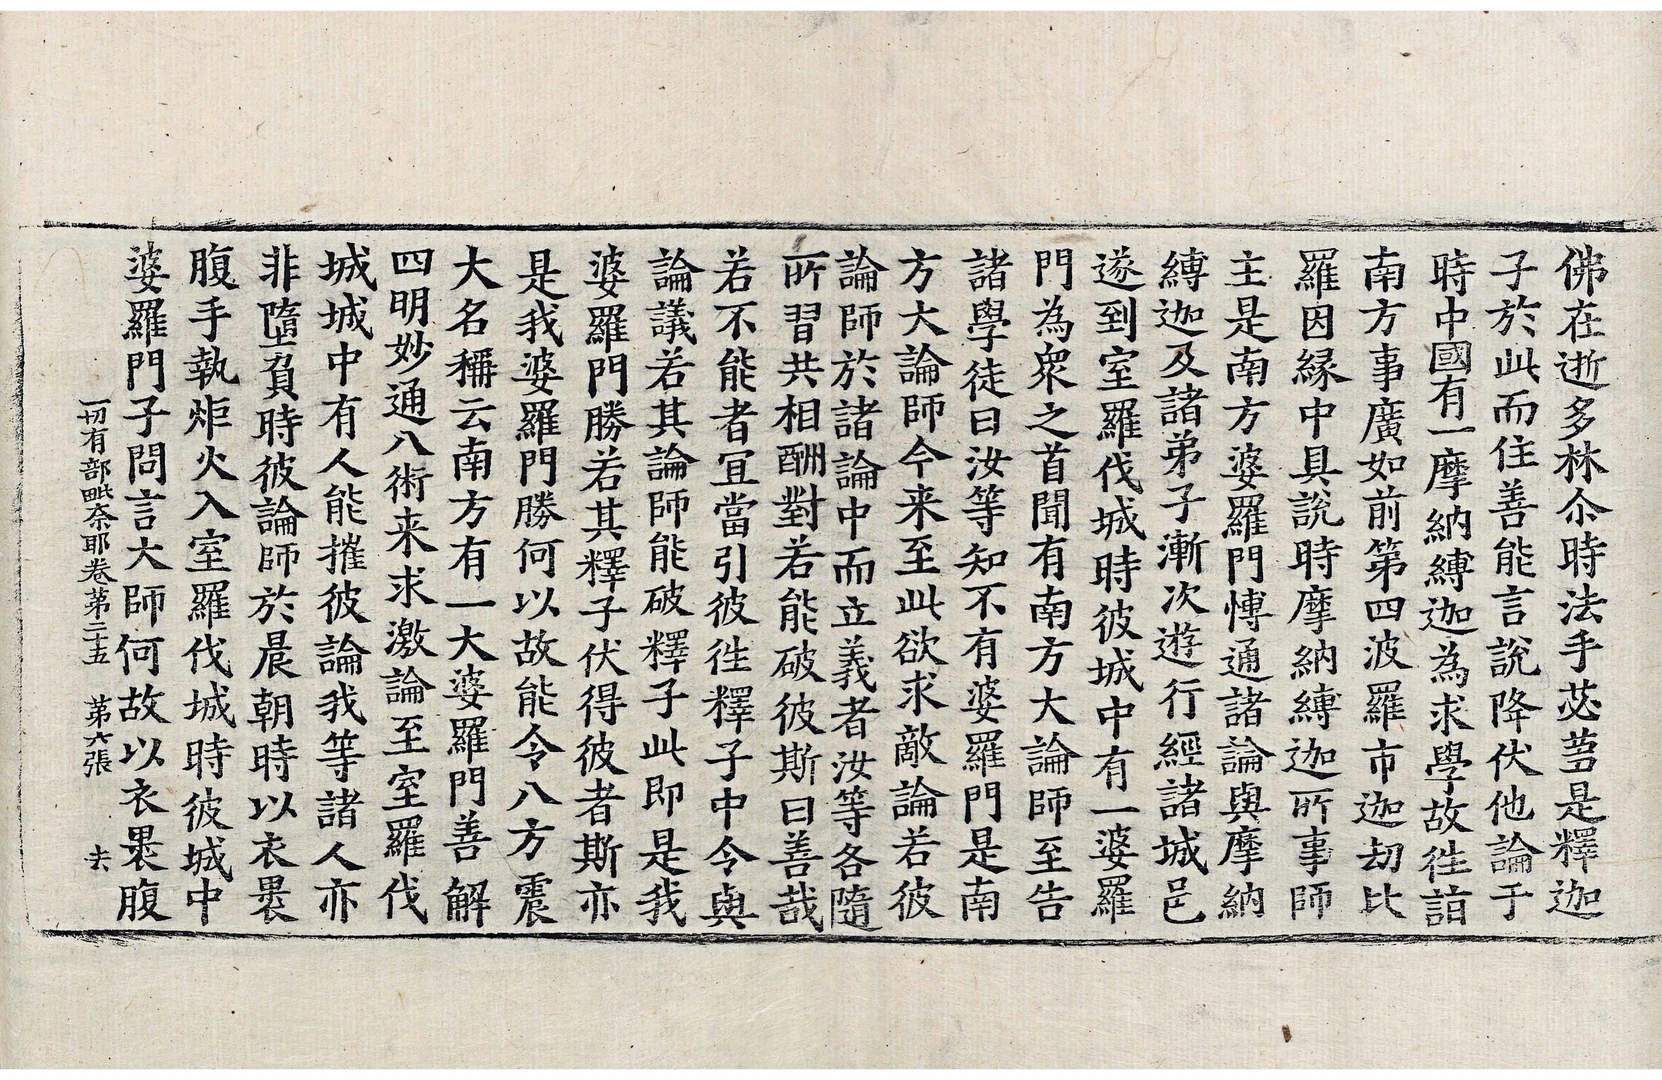 佛在逝多林尒時法手苾蒭是釋迦
子於此而住善能言說降伏他論于
時中國有一摩納縛迦為求學故徃詣
南方事廣如前第四波羅市迦刧比
羅因緣中具說時摩納縛迦所事師
主是南方婆羅門愽通諸論與摩納
縛迦及諸弟子漸次遊行經諸城邑
遂到室羅伐城時彼城中有一婆羅
門為衆之首聞有南方大論師至告
諸學徒曰汝等知不有婆羅門是南
方大論師今来至此欲求敵論若彼
論師於諸論中而立義者汝等各隨
所習共相酬對若能破彼斯曰善哉
若不能者冝當引彼徃釋子中令與
論議若其論師能破釋子此即是我
婆羅門勝若其釋子伏得彼者斯亦
是我婆羅門勝何以故能令八方震
大名稱云南方有一大婆羅門善解
四明妙通八術来求激論至室羅伐
城城中有人能摧彼論我等諸人亦
非墮負時彼論師於晨朝時以衣褁
腹手執炬火入室羅伐城時彼城中
婆羅門子問言大師何故以衣褁腹
一切有部毗奈耶卷第二十五 第六張